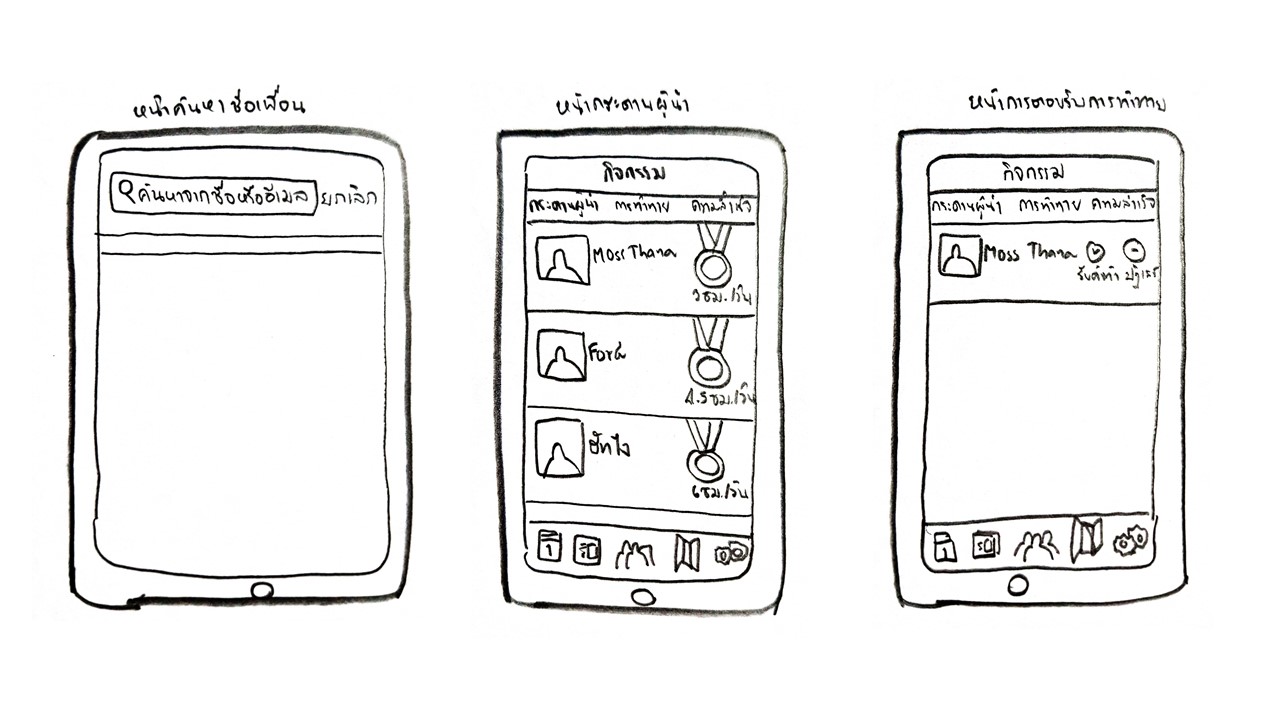 หน้าค้นหาชื่อเพื่อน
ค้นหาจากชื่อหรืออีเมล ยกเลิก
หน้ากระดานผู้นำ
กิจกรรม
กระดานผู้นำ การท้าทาย ความสำเร็จ
Moss Thana
3 ชม./วัน
Ford
4.5 ชม./วัน
6 ชม./วัน
1
หน้าการตอบรับการท้าทาย
กิจกรรม
กระดานผู้นำ การท้าทาย ความสำเร็จ
Moss Thana
รับคำท้า ปฏิเสธ
1